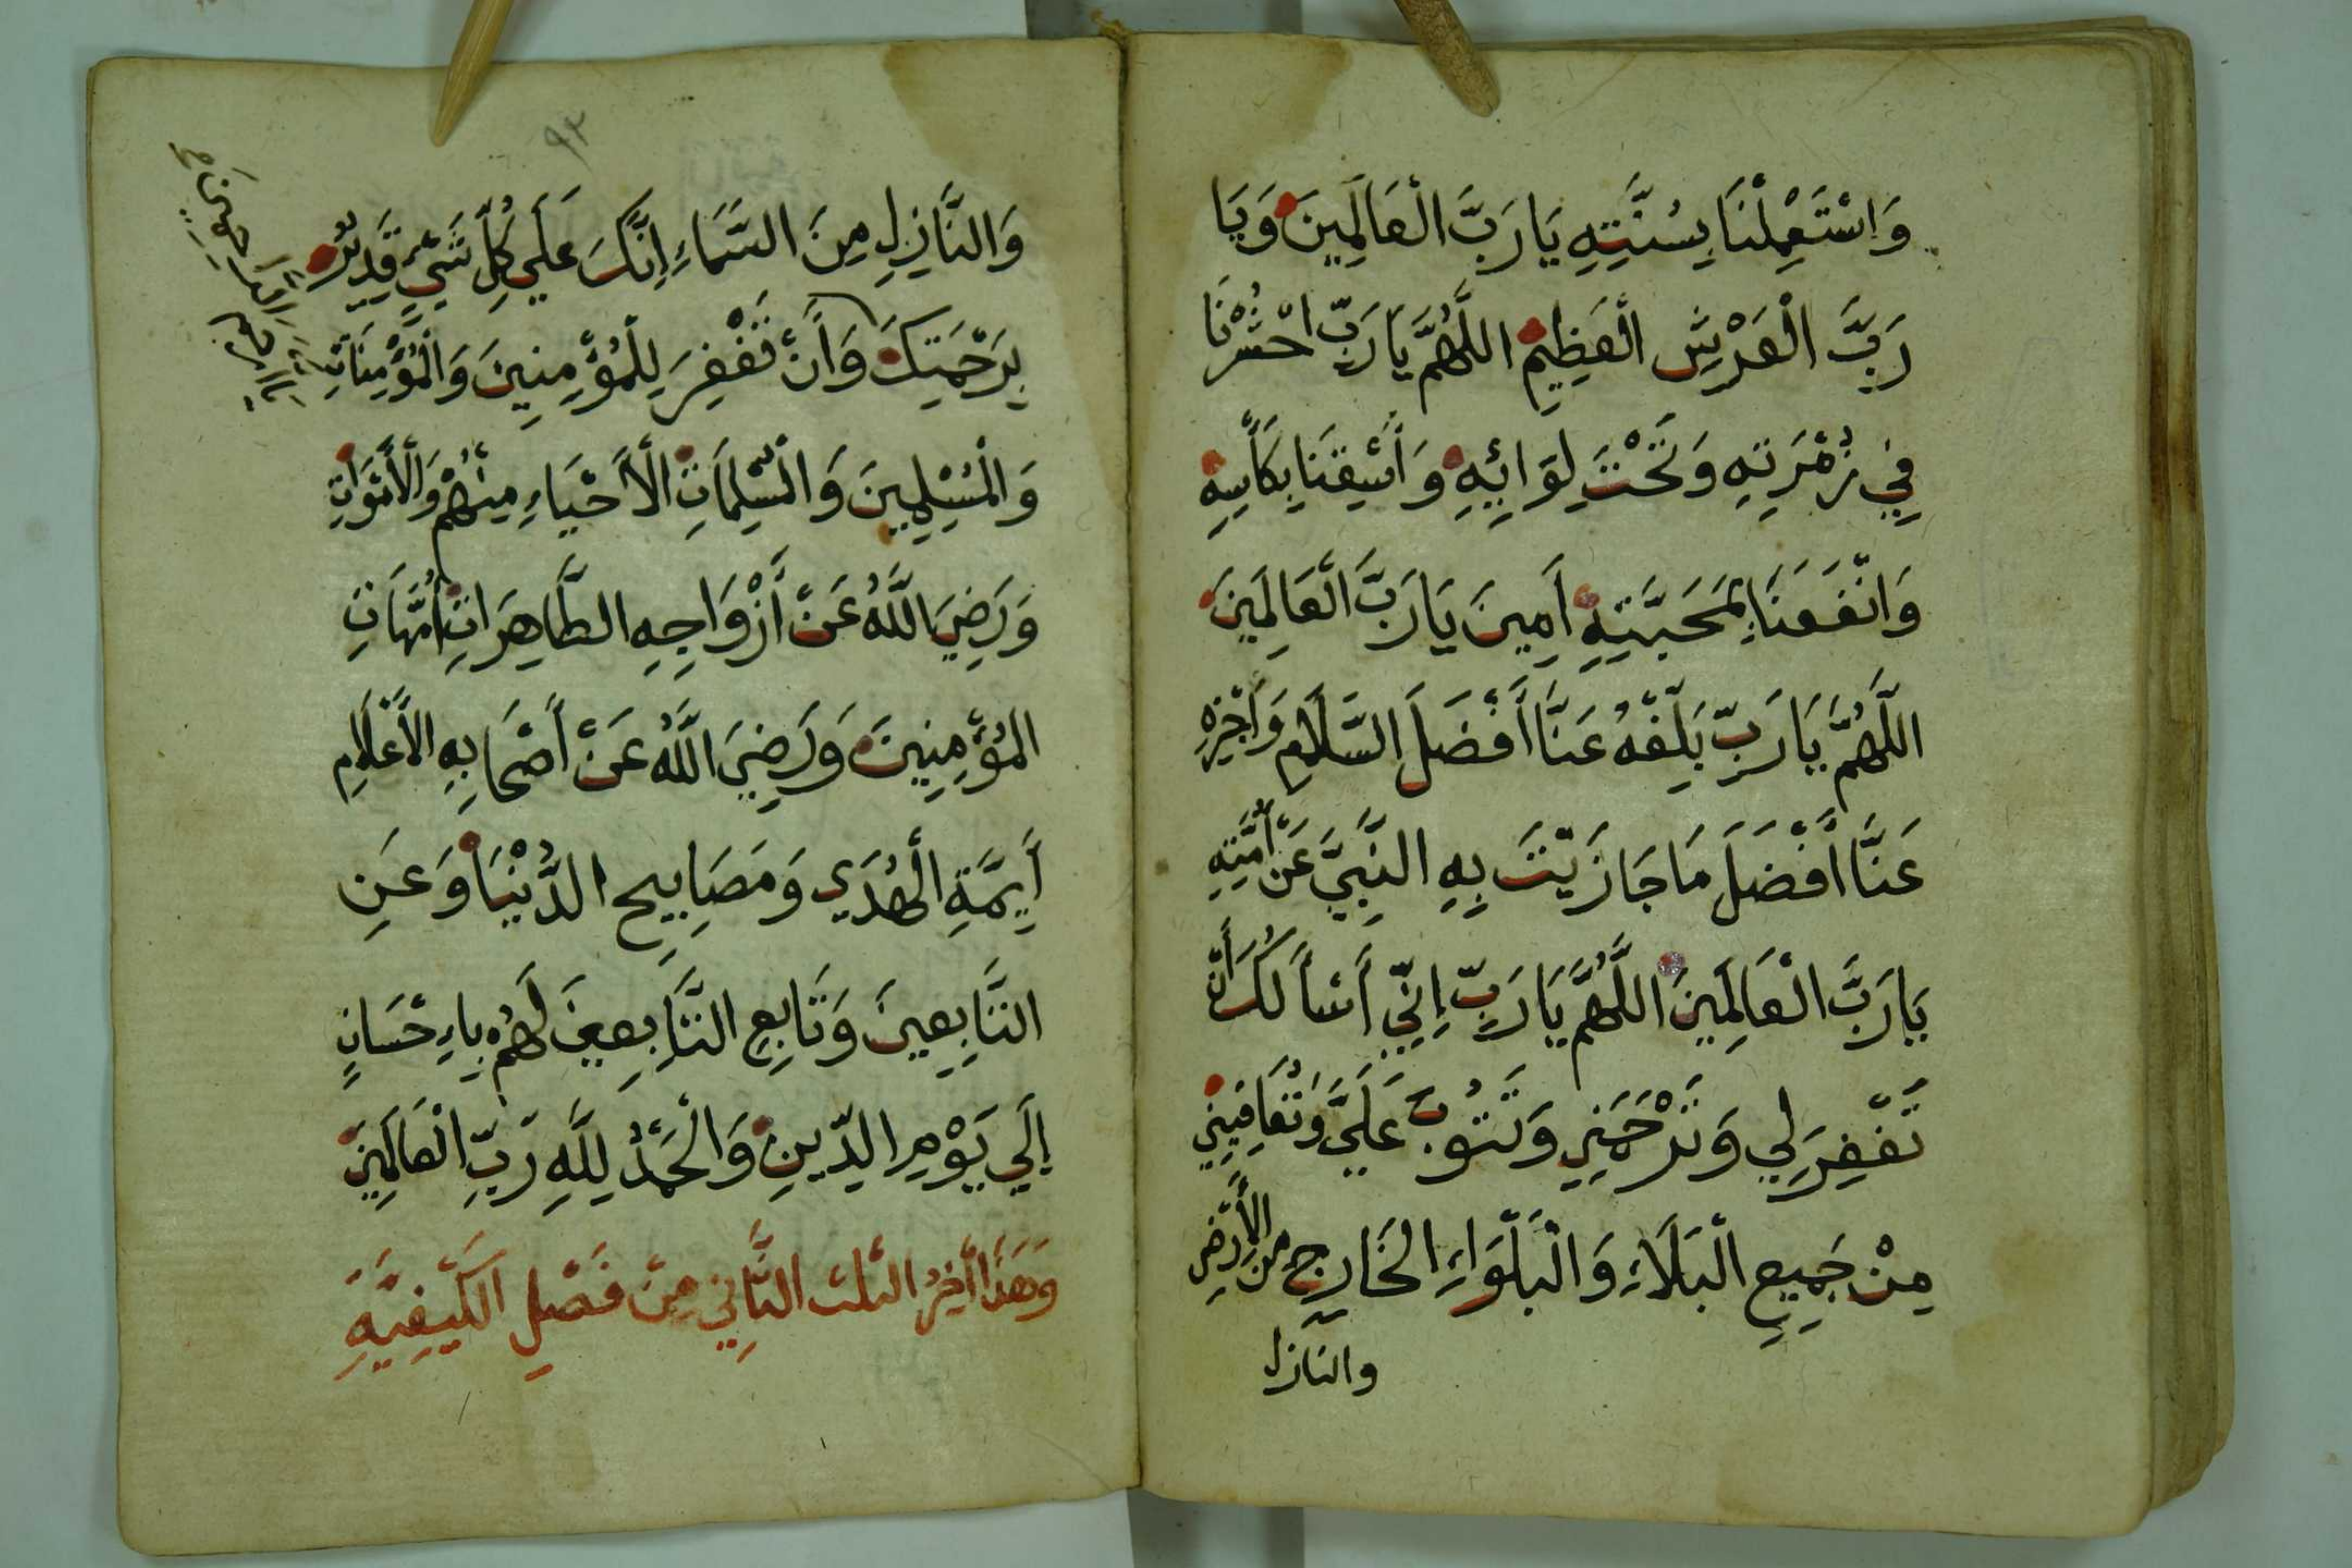 وَاسْتَعْمِلْنَا بِسُنَّتِهِ يَا رَبَّ الْعَالَمِينَ وَيَا
رَبَّ الْعَرْشِ الْعَظِيمِ اللَّهُمَّ يَا رَبِّ احْشُرْنَا
فِي زُمْرَتِهِ وَتَحْتَ لِوَائِهِ وَأَسْقِنَا بِكَأْسِهِ
وَانْفَعَنَا بِمَحَبَّتِهِ أَمِينَ يَا رَبَّ الْعَالَمِينَ
اللَّهُمَّ يَا رَبِّ بَلِّغْهُ عَنَّا أَفْضَلَ السَّلَامِ وَأَجْزِهِ
عَنَّا أَفْضَلَ مَا جَازَيْتَ بِهِ النَّبِيَّ عَنْ أُمَّتِهِ
يَا رَبَّ الْعَالَمِينَ اللَّهُمَّ يَا رَبِّ إِنِّي أَسْأَلُكَ أَنْ
تَغْفِرَ لِي وَتَرْحَمَنِي وَتَتُوبَ عَلَيَّ وَتُعَافِيَنِي
مِنْ جَمِيعِ الْبَلَاءِ وَالْبَلْوَاءِ الْخَارِجِ مِنَ الْأَرْضِ
والنازل
٩٣
وَالنَّازِلِ مِنَ السَّمَاءِ إِنَّكَ عَلَى كُلِّ شَيْءٍ قَدِيرٌ
بِرَحْمَتِكَ وَأَنْ تَغْفِرَ لِلْمُؤْمِنِينَ وَالْمُؤْمِنَاتِ
وَالْمُسْلِمِينَ وَالْمُسْلِمَاتِ الْأَحْيَاءِ مِنْهُمْ وَالْأَمْوَاتِ
وَرَضِيَ اللَّهُ عَنْ أَزْوَاجِهِ الطَّاهِرَاتِ أُمَّهَاتِ
الْمُؤْمِنِينَ وَرَضِيَ اللَّهُ عَنْ أَصْحَابِهِ الْأَعْلَامِ
أَيِمَّةِ الْهُدَى وَمَصَابِيحِ الدُّنْيَا وَعَنِ
التَّابِعِينَ وَتَابِعِ التَّابِعِينَ لَهُمْ بِإِحْسَانٍ
إِلَى يَوْمِ الدِّينِ وَالْحَمْدُ لِلَّهِ رَبِّ الْعَالَمِينَ
وَهَذَا أَخِرُ الثلث الثَّانِي مِنْ فَصْلِ الْكَيْفِيَّةِ